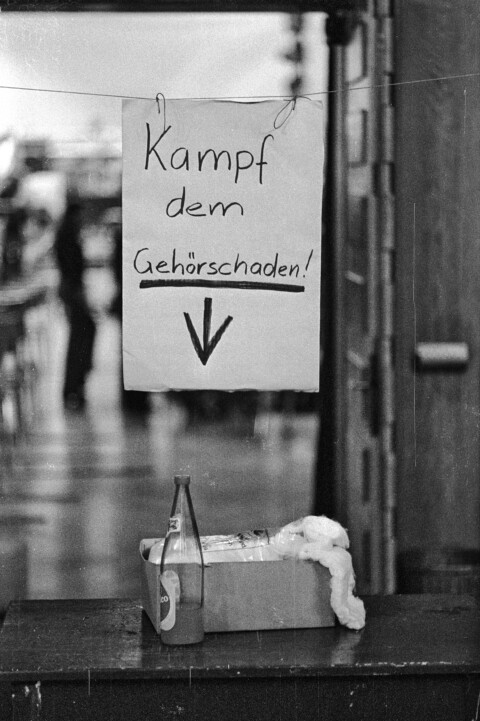 Kampf
dem
Gehörschaden!